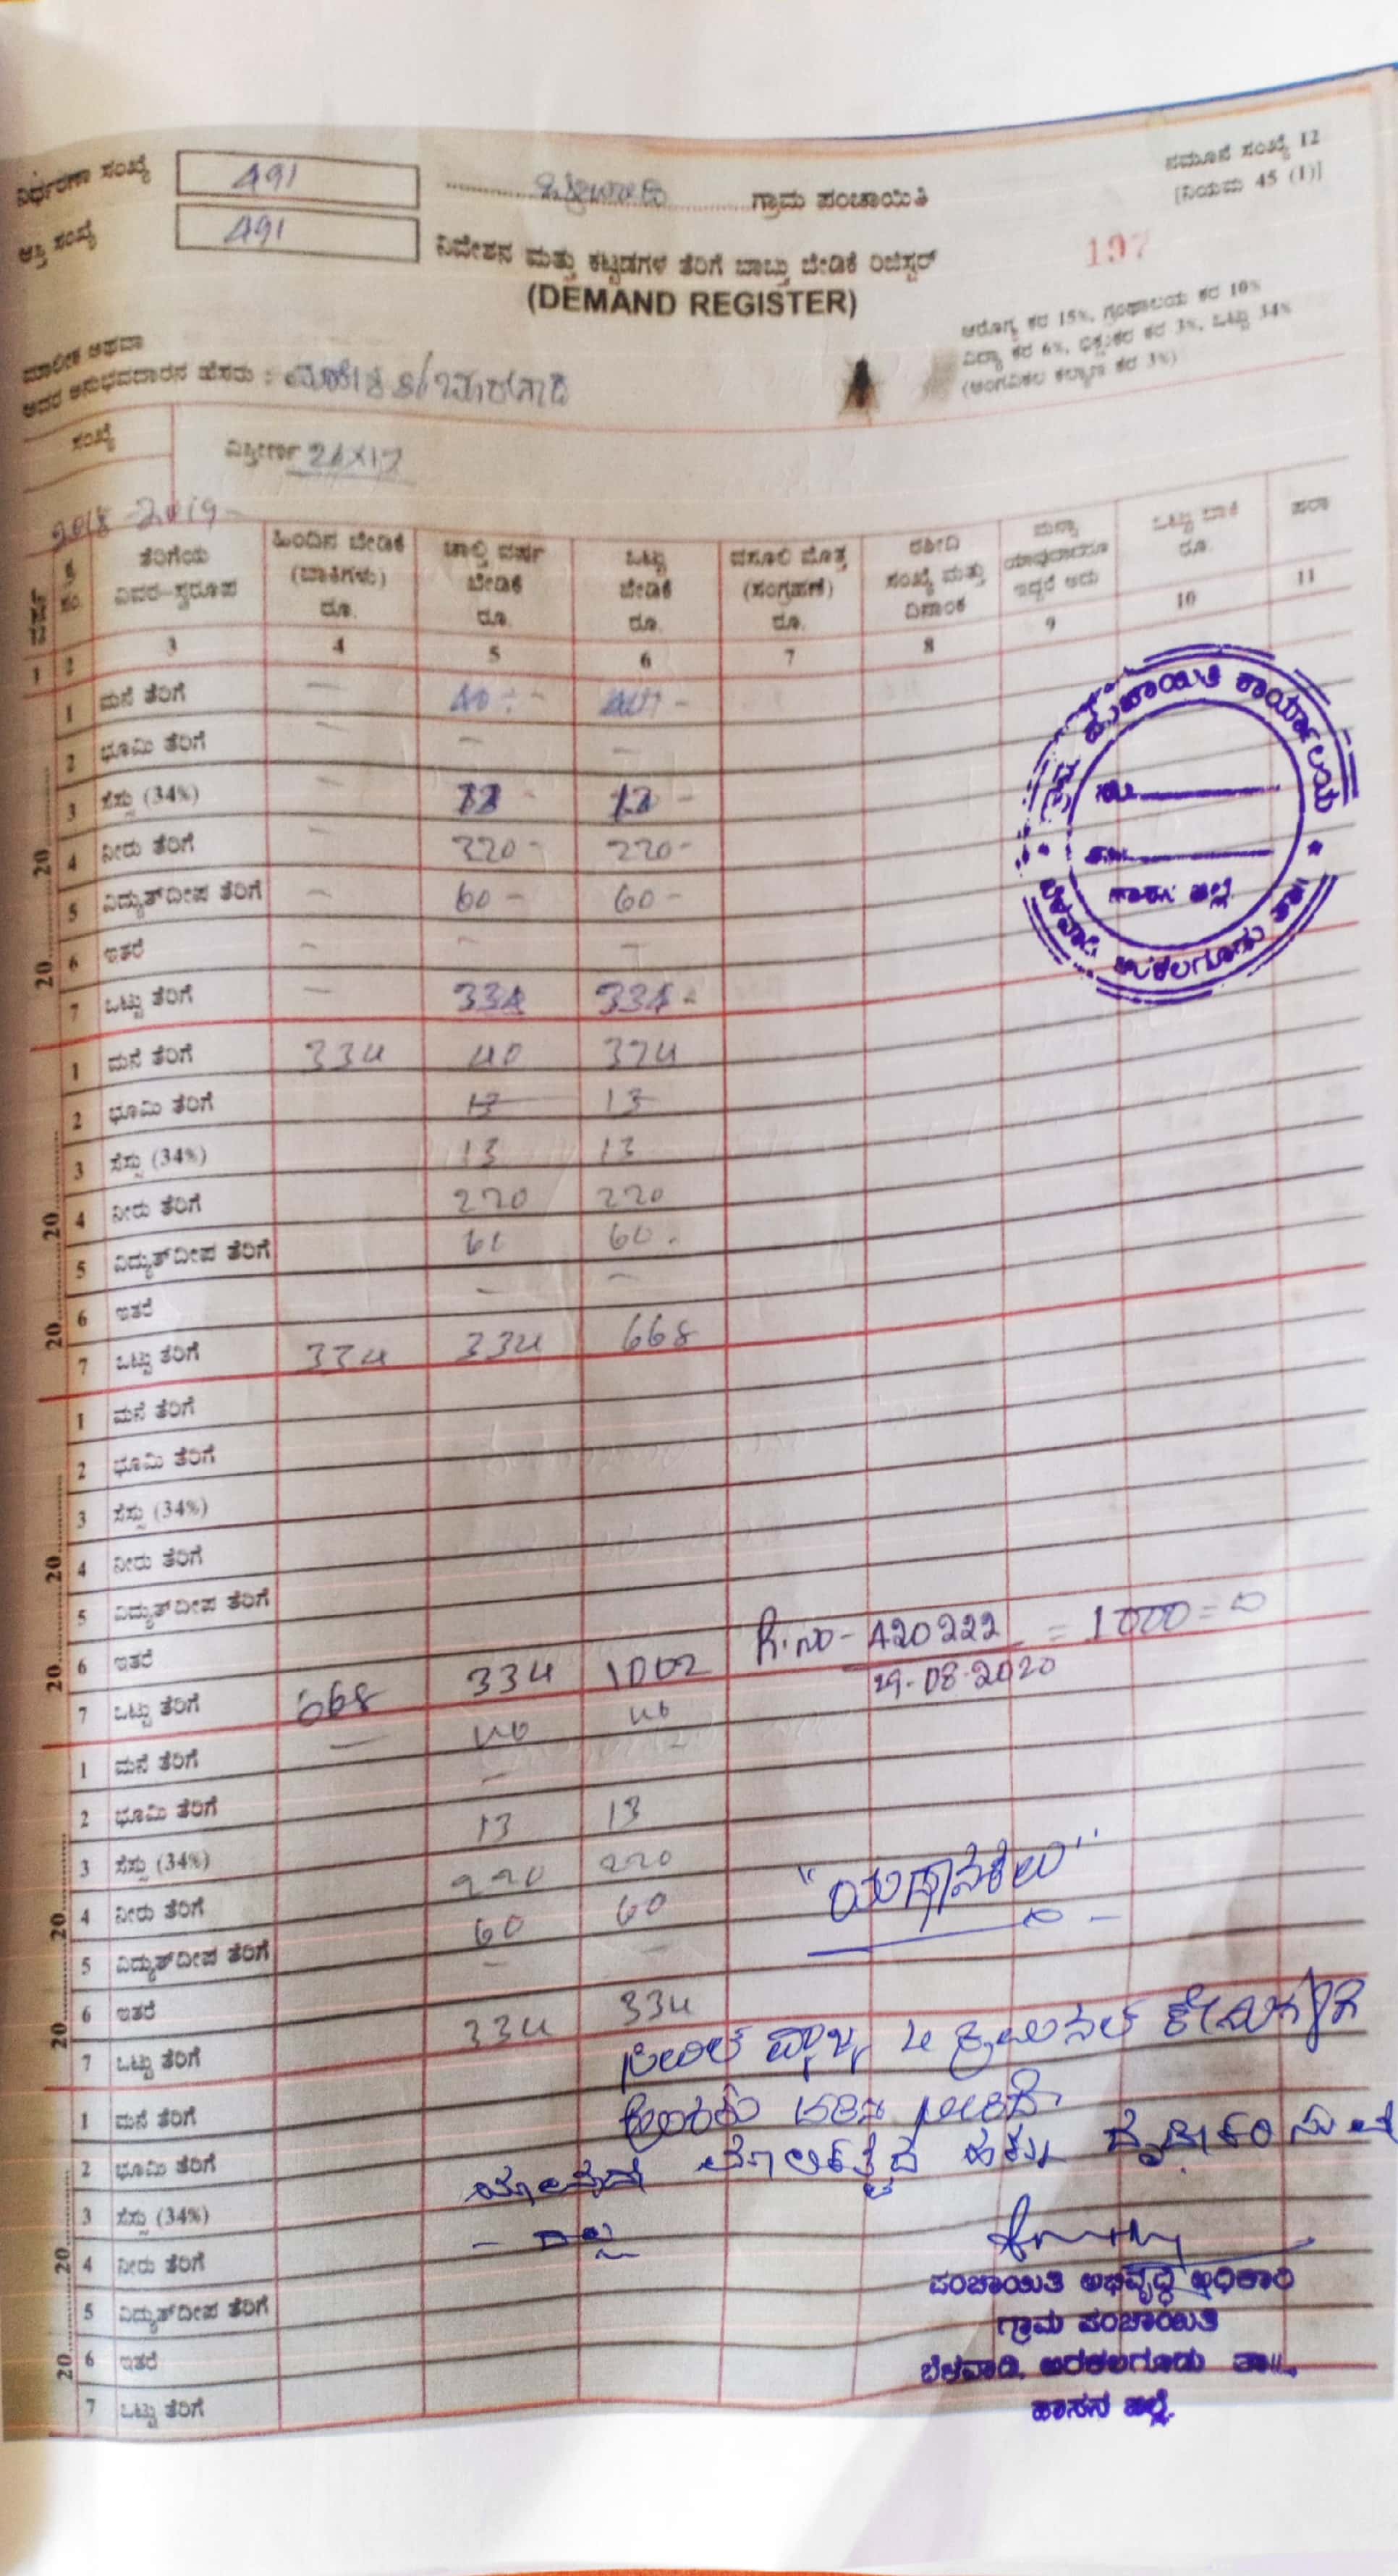 ನಮೂನೆ ಸಂಖ್ಯೆ 12
[ನಿಯಮ 45 (1)]
ನಿರ್ಧರಣಾ ಸಂಖ್ಯೆ 491
ಗ್ರಾಮ ಪಂಚಾಯಿತಿ
ಆಸ್ತಿ ಸಂಖ್ಯೆ 491
ನಿವೇಶನ ಮತ್ತು ಕಟ್ಟಡಗಳ ತೆರಿಗೆ ಬಾಬ್ತು ಬೇಡಿಕೆ ರಿಜಿಸ್ಟರ್
197
(DEMAND REGISTER)
ಆರೋಗ್ಯ ಕರ 15%, ಗ್ರಂಥಾಲಯ ಕರ 10%
ವಿದ್ಯಾ ಕರ 6%, ಭಿಕ್ಷುಕರ ಕರ 3%, ಒಟ್ಟು 34%
(ಅಂಗವಿಕಲ ಕಲ್ಯಾಣ ಕರ 3%)
ಮಾಲೀಕ ಅಥವಾ
ಅವರ ಅನುಭವದಾರನ ಹೆಸರು :
ಸಂಖ್ಯೆ
ವಿಸ್ತೀರ್ಣ 24X17
2018-2019-
ವರ್ಷ ಕ್ರ. ಸಂ. ತೆರಿಗೆಯ ವಿವರ-ಸ್ವರೂಪ ಹಿಂದಿನ ಬೇಡಿಕೆ (ಬಾಕಿಗಳು) ರೂ. ಚಾಲ್ತಿ ವರ್ಷ ಬೇಡಿಕೆ ರೂ. ಒಟ್ಟು ಬೇಡಿಕೆ ರೂ. ವಸೂಲಿ ಮೊತ್ತ (ಸಂಗ್ರಹಣೆ) ರೂ. ರಶೀದಿ ಸಂಖ್ಯೆ ಮತ್ತು ದಿನಾಂಕ ಮನ್ನಾ ಯಾವುದಾದರೂ ಇದ್ದರೆ ಅದು ಒಟ್ಟು ಬಾಕಿ ರೂ. ಷರಾ
1 2 3 4 5 6 7 8 9 10 11
1 ಮನೆ ತೆರಿಗೆ — 40 -
2 ಭೂಮಿ ತೆರಿಗೆ — — —
3 ಸೆಸ್ಸು (34%) — 13 - 13 -
4 ನೀರು ತೆರಿಗೆ — 220 - 220 -
5 ವಿದ್ಯುತ್‌ದೀಪ ತೆರಿಗೆ — 60 - 60 -
6 ಇತರೆ — — —
7 ಒಟ್ಟು ತೆರಿಗೆ — 334 334 -
1 ಮನೆ ತೆರಿಗೆ 334 40 374
2 ಭೂಮಿ ತೆರಿಗೆ 13 13
3 ಸೆಸ್ಸು (34%) 13 13
4 ನೀರು ತೆರಿಗೆ 220 220
5 ವಿದ್ಯುತ್‌ದೀಪ ತೆರಿಗೆ 60 60.
6 ಇತರೆ — —
7 ಒಟ್ಟು ತೆರಿಗೆ 334 334 668
1 ಮನೆ ತೆರಿಗೆ
2 ಭೂಮಿ ತೆರಿಗೆ
3 ಸೆಸ್ಸು (34%)
4 ನೀರು ತೆರಿಗೆ
5 ವಿದ್ಯುತ್‌ದೀಪ ತೆರಿಗೆ
6 ಇತರೆ
7 ಒಟ್ಟು ತೆರಿಗೆ 668 334 1002 R.no- A20222 = 1000 = 0
29-08-2020
1 ಮನೆ ತೆರಿಗೆ — 40 40
2 ಭೂಮಿ ತೆರಿಗೆ —
3 ಸೆಸ್ಸು (34%) 13 13
4 ನೀರು ತೆರಿಗೆ 220 220
5 ವಿದ್ಯುತ್‌ದೀಪ ತೆರಿಗೆ 60 60
6 ಇತರೆ — —
7 ಒಟ್ಟು ತೆರಿಗೆ 334 334
1 ಮನೆ ತೆರಿಗೆ
2 ಭೂಮಿ ತೆರಿಗೆ
3 ಸೆಸ್ಸು (34%)
4 ನೀರು ತೆರಿಗೆ
5 ವಿದ್ಯುತ್‌ದೀಪ ತೆರಿಗೆ
6 ಇತರೆ
7 ಒಟ್ಟು ತೆರಿಗೆ
20.........20.........
ಪಂಚಾಯಿತಿ ಕಾರ್ಯಾಲಯ
ಹಾಸನ ಜಿಲ್ಲೆ
ಬೆಳವಾಡಿ ಅರಕಲಗೂಡು ತಾ॥
"ಯಥಾನಕಲು"
ಪಂಚಾಯಿತಿ ಅಭಿವೃದ್ಧಿ ಅಧಿಕಾರಿ
ಗ್ರಾಮ ಪಂಚಾಯಿತಿ
ಬೆಳವಾಡಿ, ಅರಕಲಗೂಡು ತಾ॥,
ಹಾಸನ ಜಿಲ್ಲೆ.